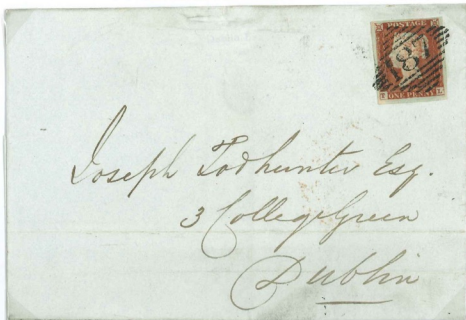 POSTAGE
187
ONE PENNY
Joseph Todhunter Esq.
3 College Green
Dublin